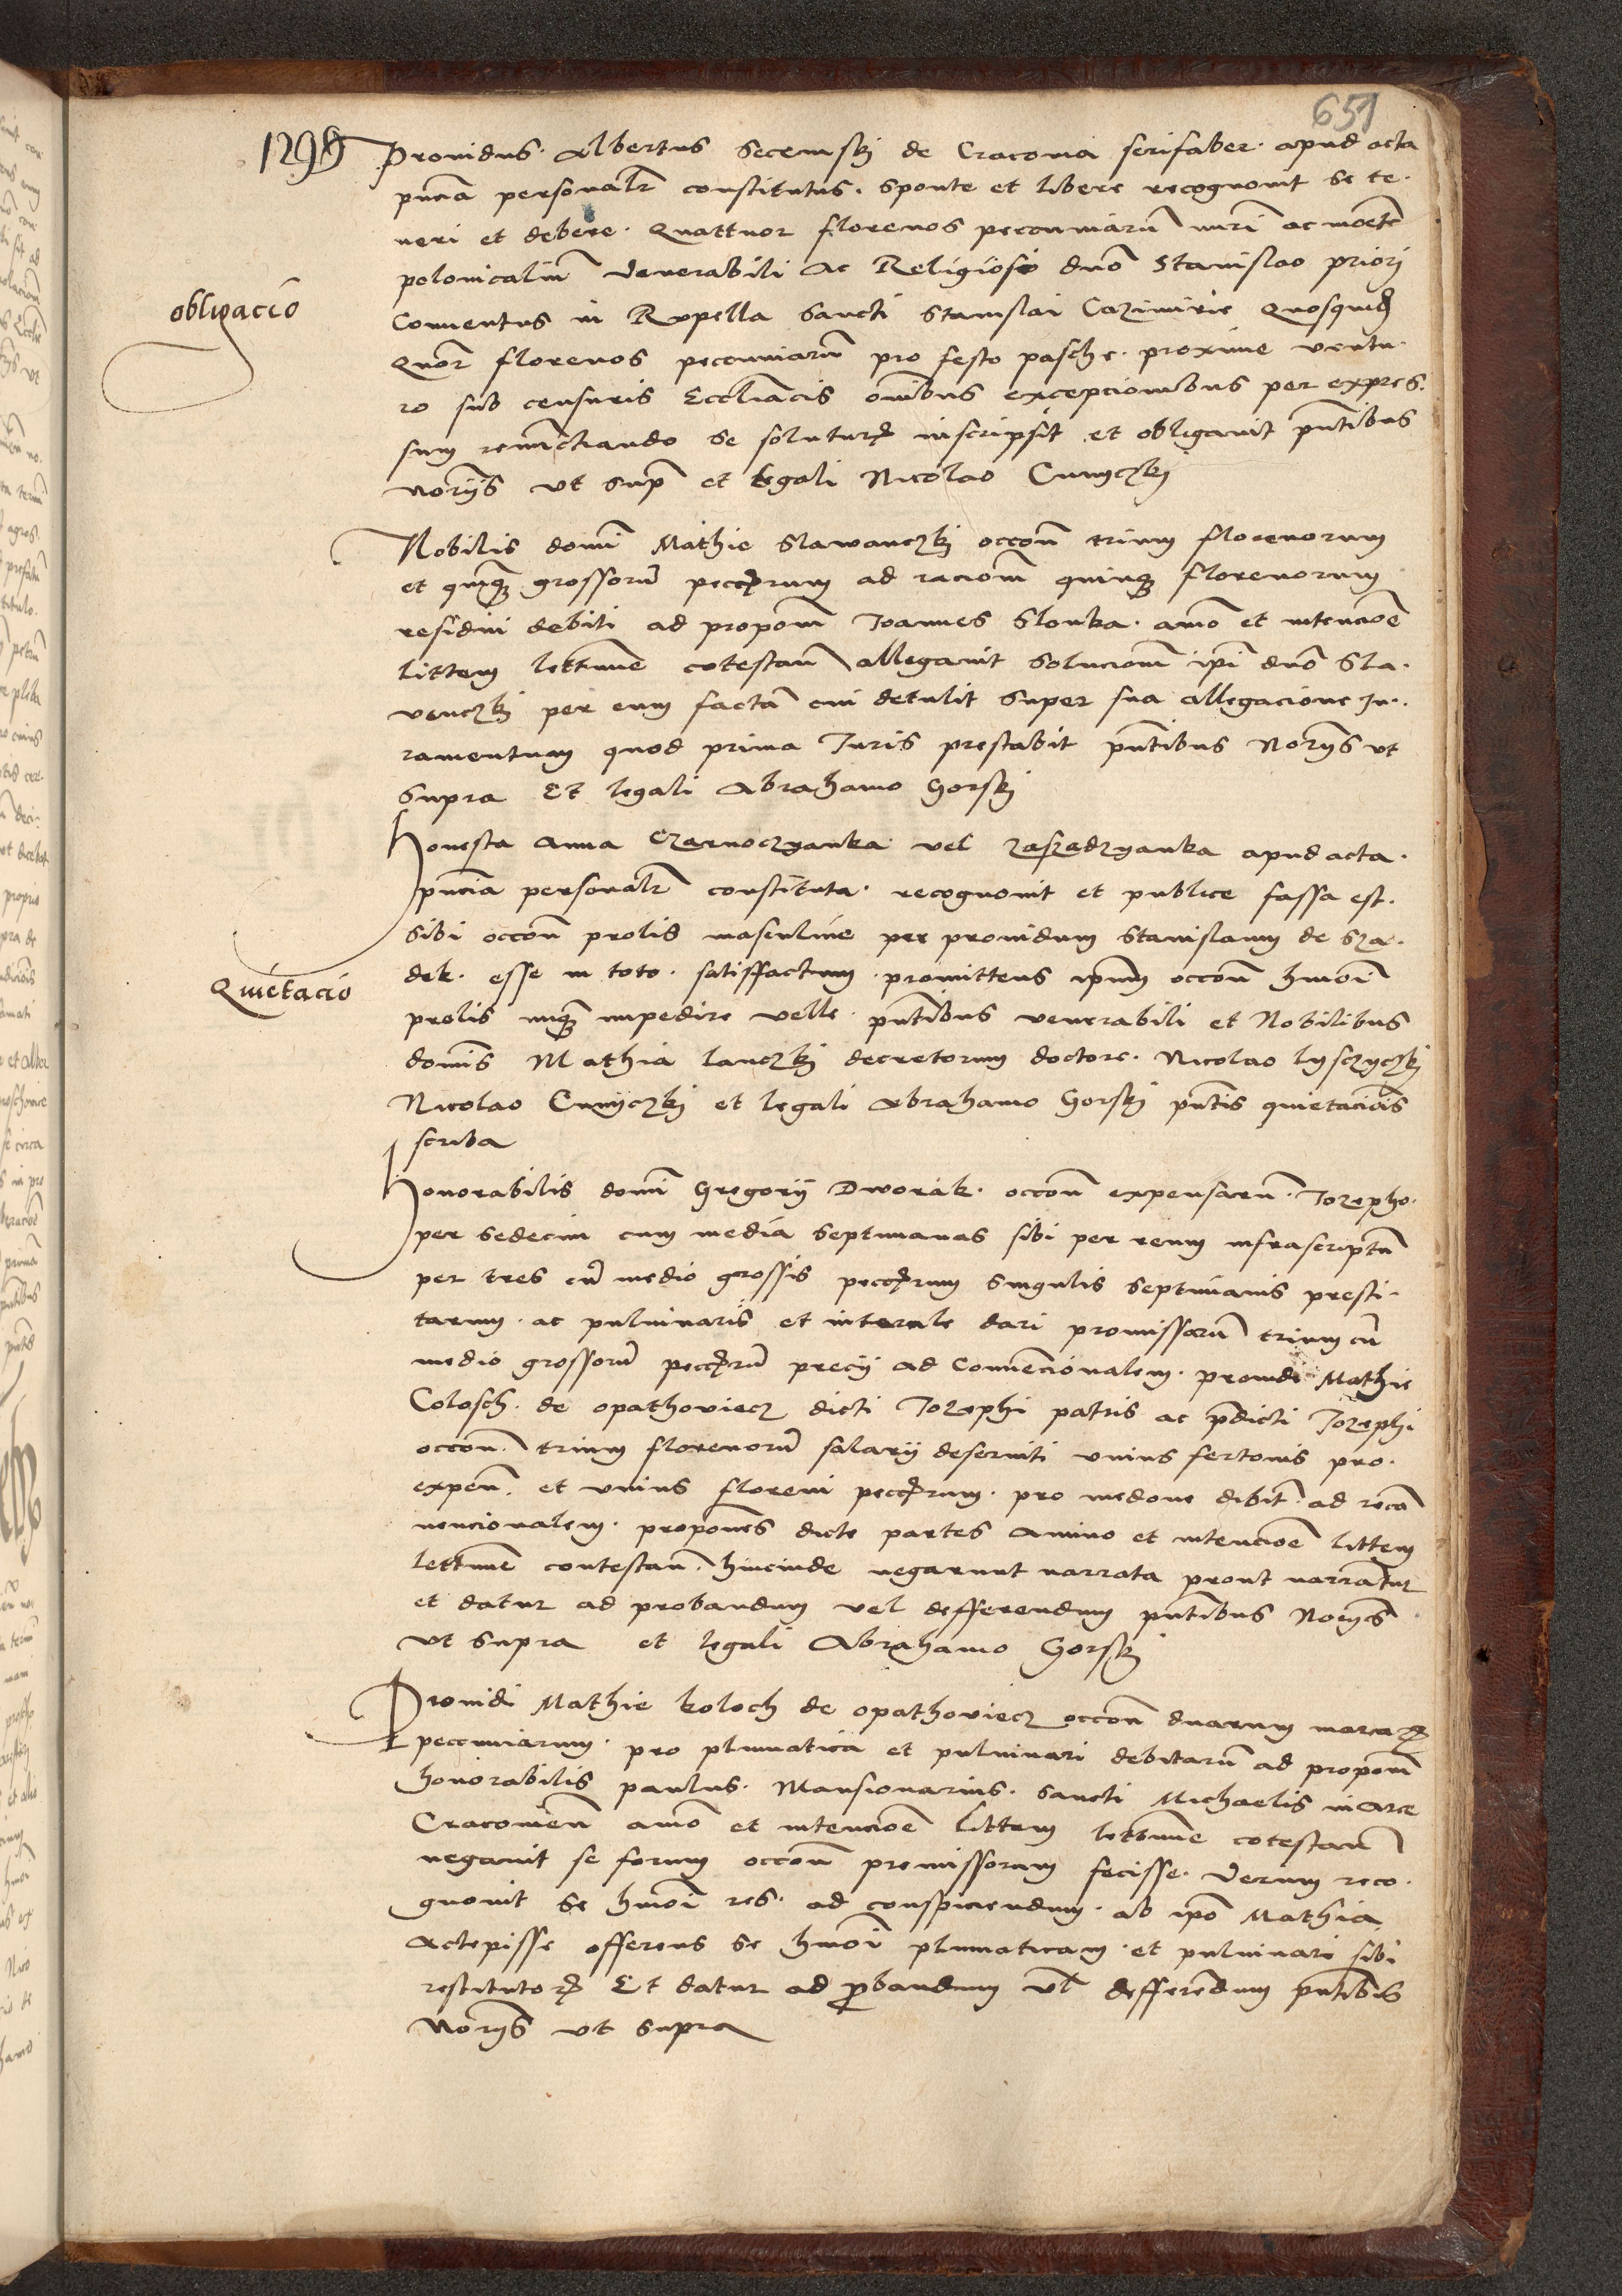 651
1298 Providus Albertus Secemsky de Cracovia serifaber apud acta
pncia personalr constitutus. sponte et libere recognovit se te.
neri et debere. Quattuor florenos pecuniarum nri ac monete
polonicalium Venerabili ac Religioso dno Stanislao priori
Conventus in Rupella Sancti Stanislai Cazimirie Quosquid
obligacio
Quor florenos pecuniarum pro festo pasche. proxime ventu.
ro sub censuris Eccliacis omibus excepcionibus per expres.
sum renuncciando se soluturum inscripsit et obligavit pntibus
noriis ut supra et legali Nicolao Cunyczky
Nobilis domi Mathie Slawenczky occone trium florenorum
et quinque grossorum peccorum ad racionem quinque florenorum
residui debiti ad propom Joannes Slonka. amo et intencioe
littem lettime cotestan allegavit solucionem ipi dno Sla.
venczky per eum factam cui detulit super sua allegacione Ju.
ramentum quod prima Juris prestabit pntibus Noriis ut
supra Et legali Abrahamo Gorsky
honesta Anna Czarnoczyanka vel zaszadzyanka apud acta.
pncia personalr constituta. recognovit et publice fassa est.
sibi occone prolis masculine per providum Stanislaum de Sza.
dek. esse in toto. satisffactum. promittens ipsum occone hmoi
Quietacio
prolis nunquam impedire velle. pntibus venerabili et Nobilibus
domis Mathia lanczky decretorum doctore. Nicolao lysczyczky
Nicolao Cunyczky et legali Abrahamo Gorsky pntis quietaciois
scriba
honorabilis domi Gregorii Dworak. occone expensarum. Jozepho.
per sedecim cum media septimanas sibi per reum infrascriptum
per tres cum medio grossis peccorum singulis septimanis presti.
tarum. ac pulvinaris et interule dari promissarum trium cum
medio grossorum peccorum precii ad Convencionalem. providi Mathie
Colosch. de opathoviecz dicti Jozephi patris ac pdicti Jozephi
occone. trium florenorum salarii deserviti unius fertonis pro.
expen. et unius floreni peccorum. pro medone debit. ad recon
vencionalem. propones dicte partes animo et intencioe littem
lettime contestan. hincinde negarunt narrata prout narrantur
et datur ad probandum vel defferendum pntibus Noriis
ut supra et legali Abrahamo Gorsky
Providi Mathie koloch de opathoviecz occone duarum marcarum
pecuniarum. pro plumatica et pulvinari debitarum ad propom
honorabilis paulus. Mansionarius. Sancti Michaelis in Arce
Cracovien amo et intencioe littem lettime cotestan
negavit se forum occone premissorum fecisse. Verum reco.
gnovit se hmoi res. ad conspiciendum. ab ipo Mathia.
Accepisse offerens se hmoi plumaticam. et pulvinari sibi
restiturum Et datur ad probandum vel defferendum pntibus
Noriis ut supra